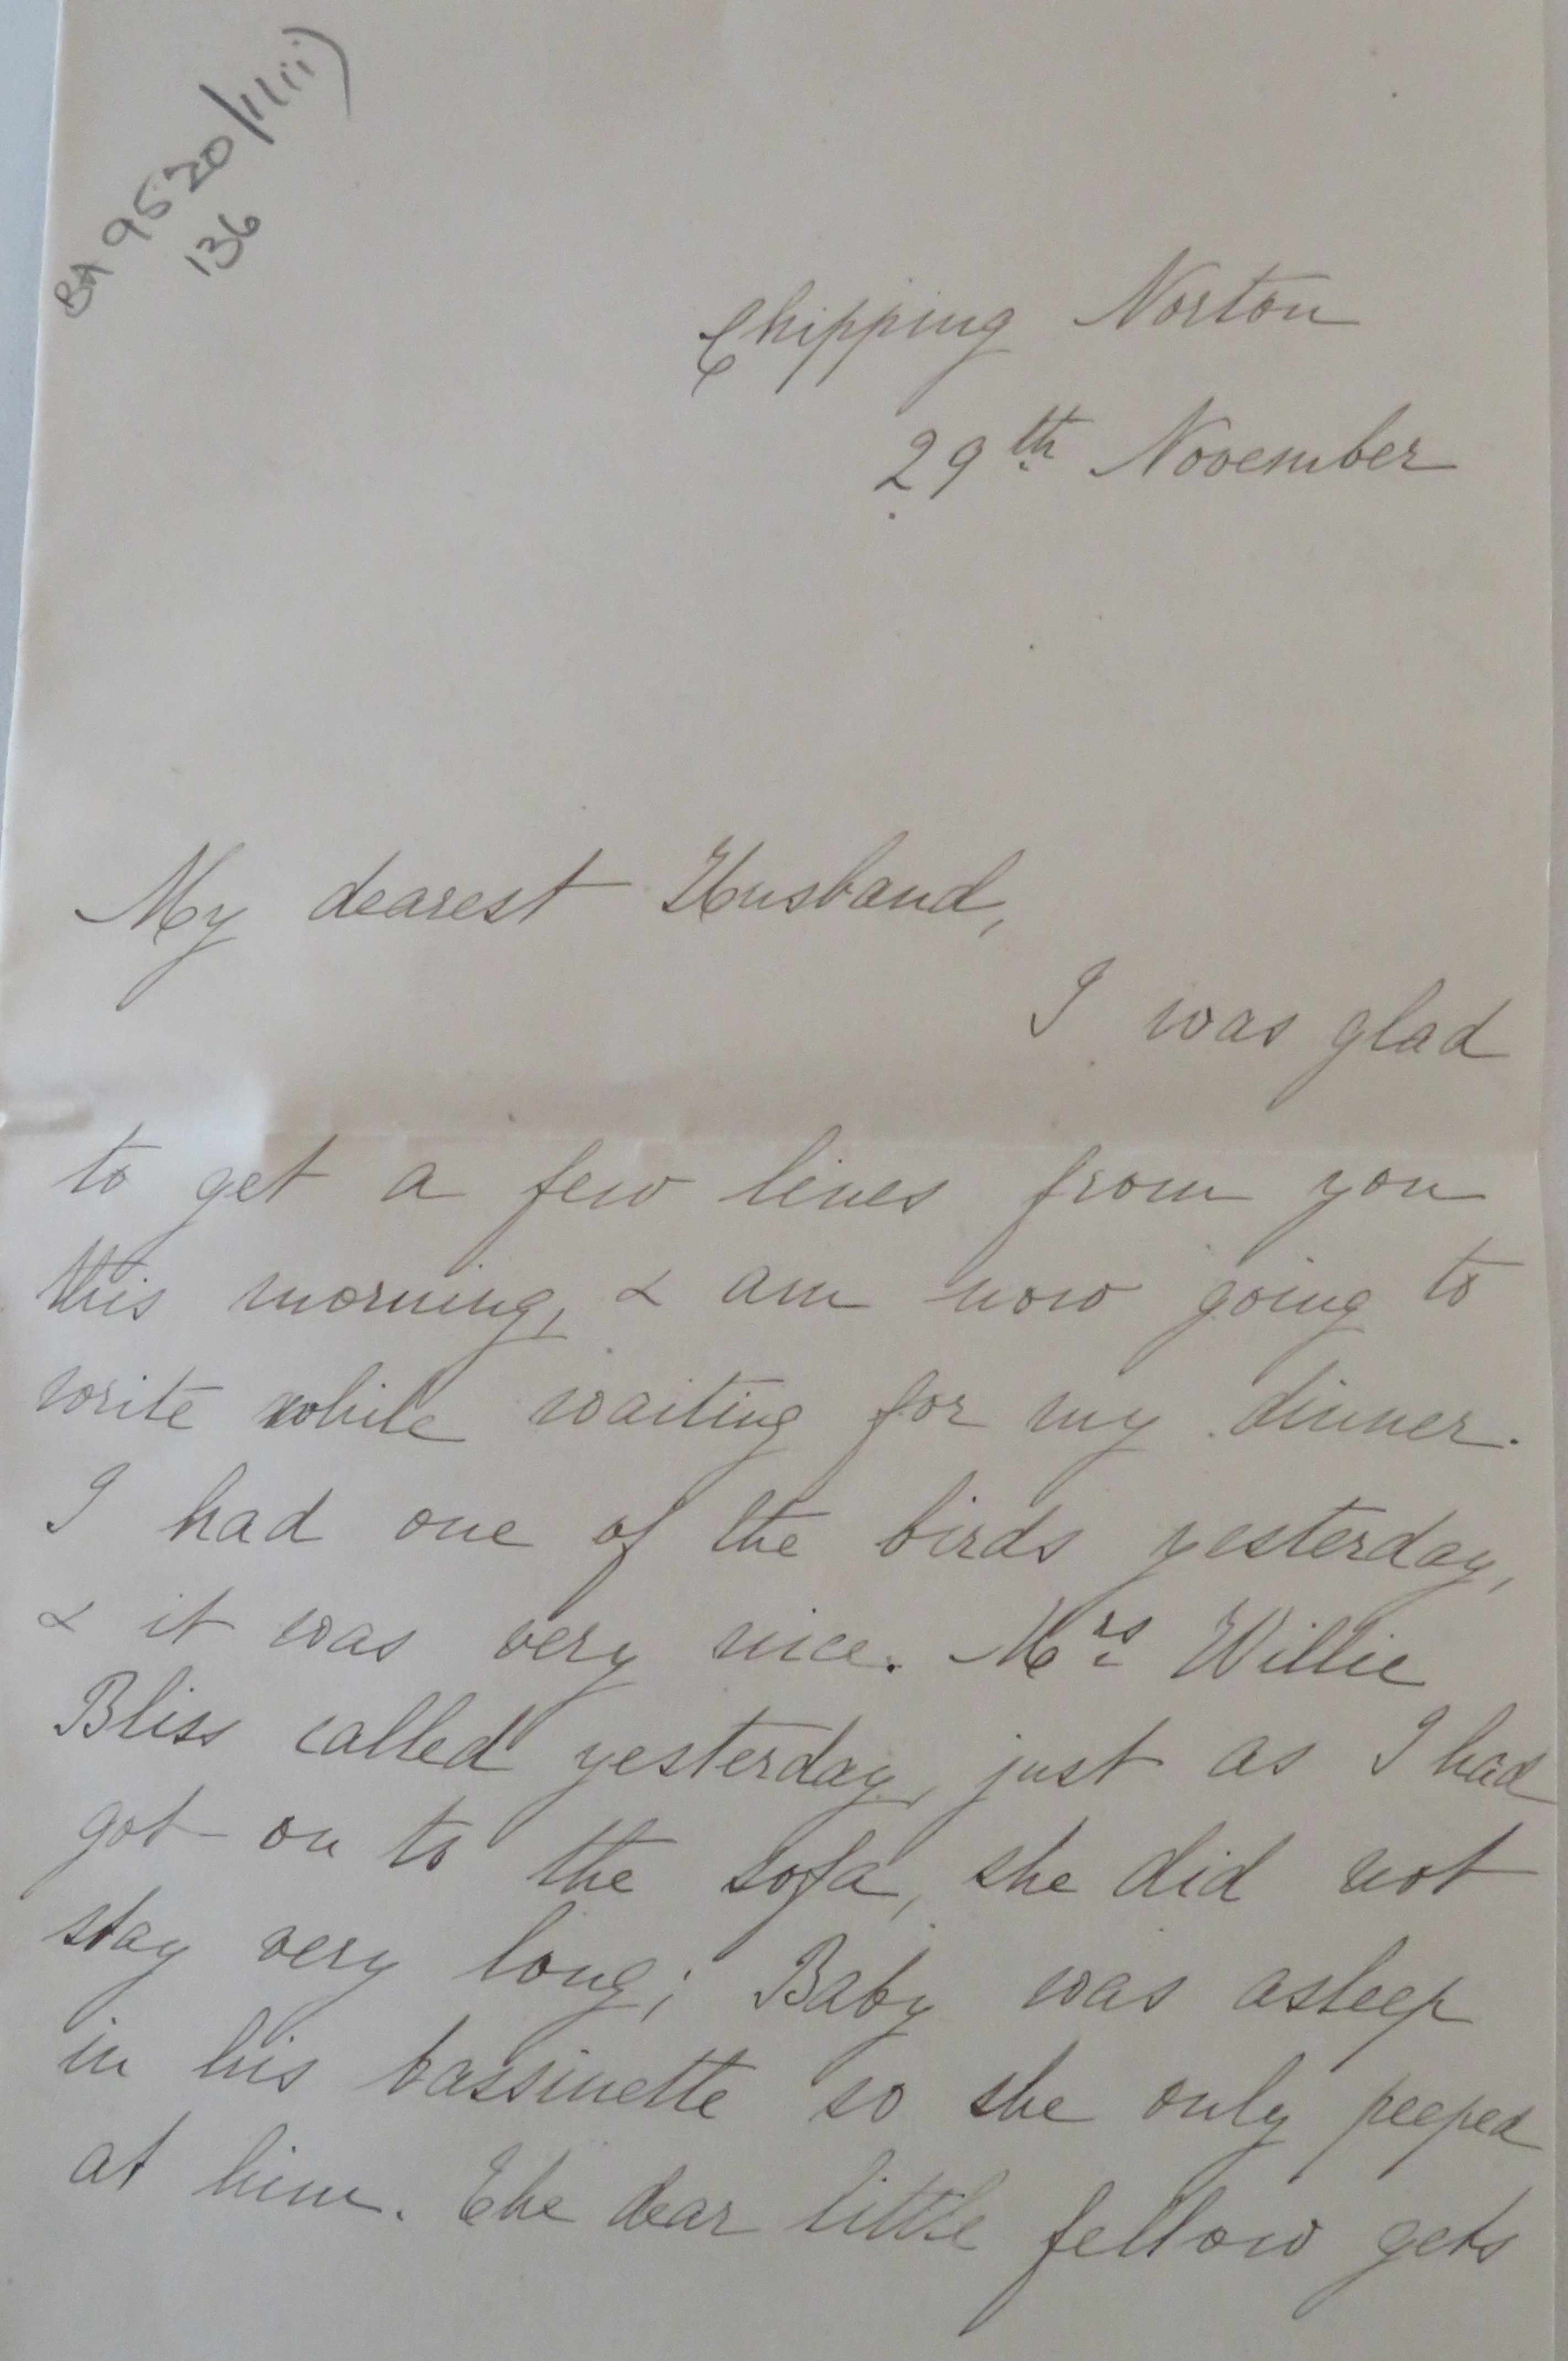 BA 9520/11(i)
136
Chipping Norton
29th November
My dearest Husband,
I was glad
to get a few lines from you
this morning, & am now going to
write while waiting for my dinner.
I had one of the birds yesterday,
& it was very nice. Mrs Willie
Bliss called yesterday, just as I had
got on to the sofa, she did not
stay very long; Baby was asleep
in his bassinette so she only peeped
at him. The dear little fellow gets